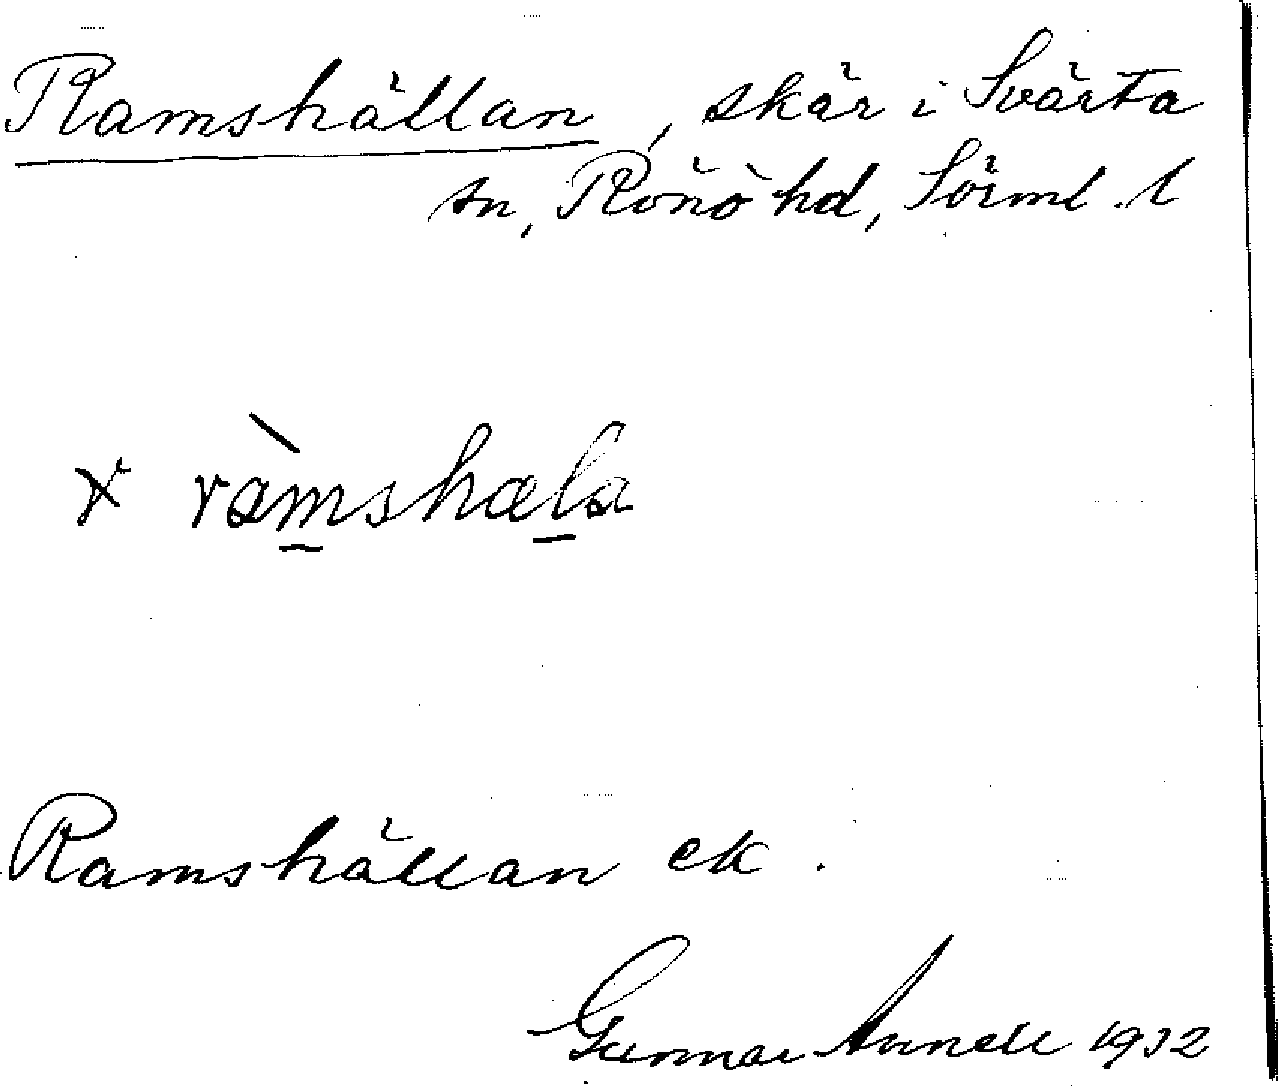 Ramshällan, skär i Svärta
sn, Rönö hd, Sörml. l
x ràmshæla
Ramshällan ek.
Gunnar Annell 1932